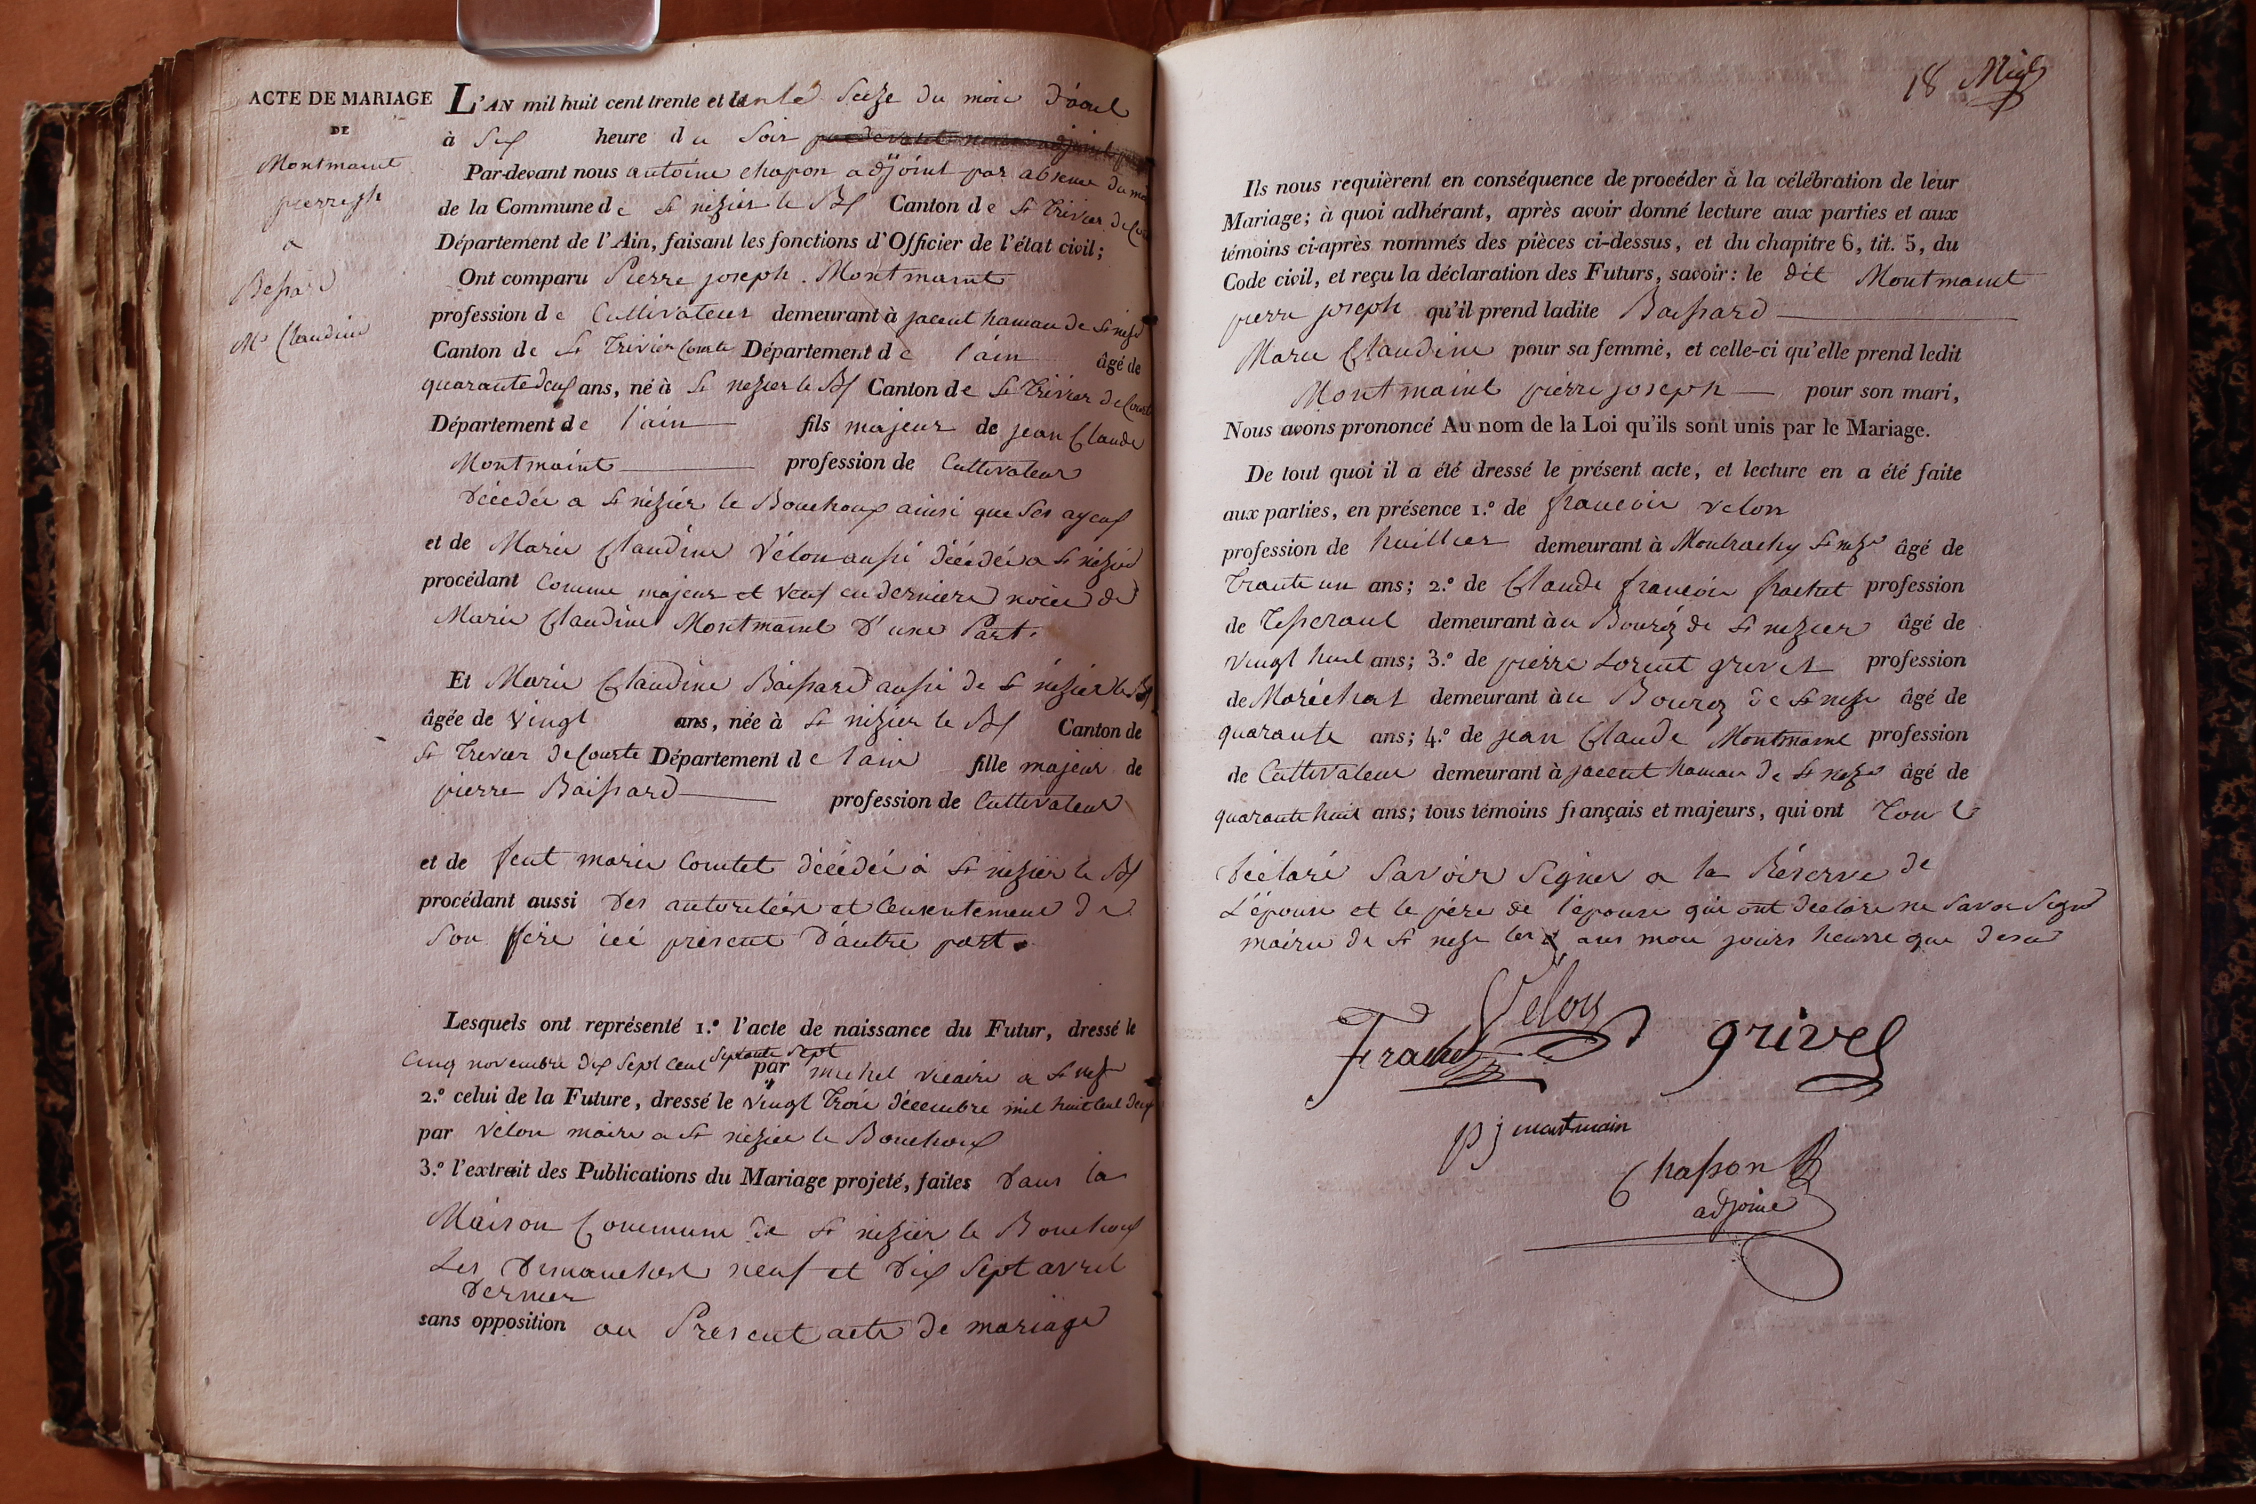 ACTE DE MARIAGE
DE
Montmaint
pierre jh
a
Bessard
Me Claudine
L'AN mil huit cent trente et Seize du mois
à Six heure du Soir
Par-devant nous antoine chapon adjoint par absence du
de la Commune de St nizier le Bx Canton de St Trivier de
Département de l'Ain, faisant les fonctions d'Officier de l'état civil;
Ont comparu Pierre joseph Montmaint
profession de Cultivateur demeurant à jacent hamau de St
Canton de St Trivier Courte Département de l'ain âgé de
ans, né à St nizier le Bx Canton de St Trivier de Courte
Département de l'ain fils majeur de jean Claude
Montmaint profession de Cultivateur
décédée a St nizier le Bouchoux ainsi que Ses ayeux
et de Marie Claudine Vélon aussi décédée a St nizier
procédant Comme majeur et Veuf en derniere noice de
Marie Claudine Montmaint D'une Part.
Et Marie Claudine Baissard aussi de St nizier le Bx
âgée de Vingt ans, née à St nizier le Bx Canton de
St Trevier de Courte Département de l'ain fille majeur de
pierre Baissard profession de Cultivateur
et de feut marie Comtet décédée à St nizier le Bx
procédant aussi Des autoritées et Consentement de
Son Père ici présent D'autre part.
Lesquels ont représenté 1.º l'acte de naissance du Futur, dressé le
Cinq novembre dix Sept Cent Septante Sept
par michel vicaire a St
2.º celui de la Future, dressé le Vingt Trois décembre mil huit Cent
par Vélon maire a St nizier le Bouchoux
3.º l'extrait des Publications du Mariage projeté, faites Dans la
Maison Commune de St nizier le Bouchoux
Les Dimanches neuf et Dix Sept avril
Dernier
sans opposition au Présent acte de mariage
18
Ils nous requièrent en conséquence de procéder à la célébration de leur
Mariage; à quoi adhérant, après avoir donné lecture aux parties et aux
témoins ci-après nommés des pièces ci-dessus, et du chapitre 6, tit. 5, du
Code civil, et reçu la déclaration des Futurs, savoir: le dit Montmaint
pierre joseph qu'il prend ladite Baissard
Marie Claudine pour sa femme, et celle-ci qu'elle prend ledit
Montmaint pierre joseph pour son mari,
Nous avons prononcé Au nom de la Loi qu'ils sont unis par le Mariage.
De tout quoi il a été dressé le présent acte, et lecture en a été faite
aux parties, en présence 1.º de françois velon
profession de huillier demeurant à Montrachy St âgé de
Trante un ans; 2.º de Claude françois frachet profession
de Tisseraut demeurant àu Bourg de St nizier âgé de
Vingt huit ans; 3.º de pierre Lorent grivet profession
de Maréchal demeurant àu Bourg de St âgé de
quarante ans; 4.º de jean Claude Montmaint profession
de Cultivateur demeurant à jacent hamau de St âgé de
quarante huit ans; tous témoins français et majeurs, qui ont Tout
déclaré Savoir Signer a la Réserve de
L'épouse et le père de l'épouse qui ont déclaré ne Savoir Signer
mairie de St ans mois jours heurre que
Velon
Frachet
grivel
pj montmain
Chapon
adjoint